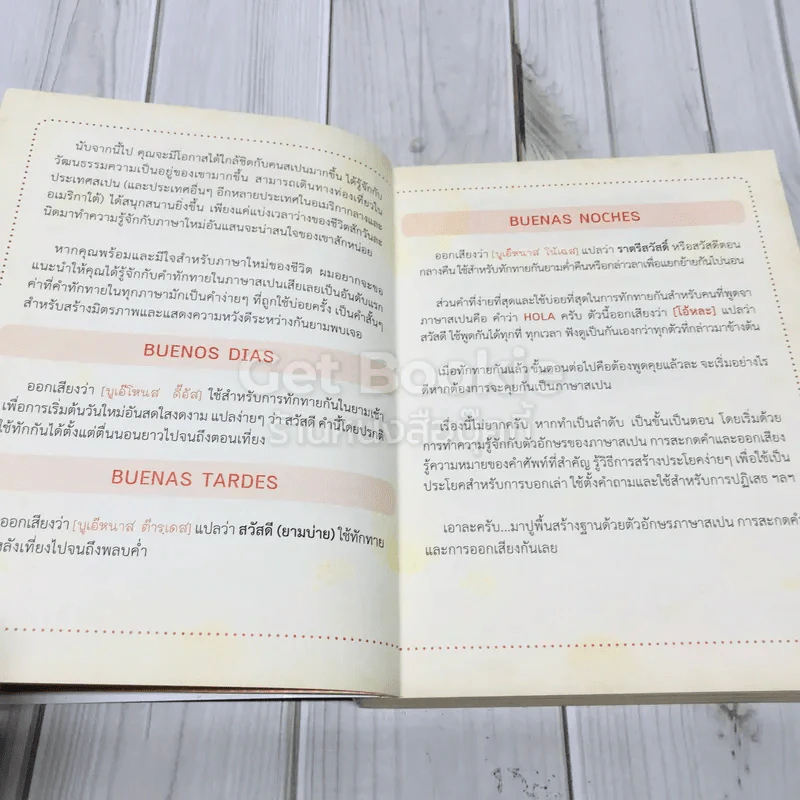 นับจากนี้ไป คุณจะมีโอกาสได้ใกล้ชิดกับคนสเปนมากขึ้น ได้รู้จักกับ
วัฒนธรรมความเป็นอยู่ของเขามากขึ้น สามารถเดินทางท่องเที่ยวใน
ประเทศสเปน (และประเทศอื่นๆ อีกหลายประเทศในอเมริกากลางและ
อเมริกาใต้) ได้สนุกสนานยิ่งขึ้น เพียงแค่แบ่งเวลาว่างของชีวิตสักวันละ
นิดมาทำความรู้จักกับภาษาใหม่อันแสนจะน่าสนใจของเขาสักหน่อย
หากคุณพร้อมและมีใจสำหรับภาษาใหม่ของชีวิต ผมอยากจะขอ
แนะนำให้คุณได้รู้จักกับคำทักทายในภาษาสเปนเสียเลยเป็นอันดับแรก
คำที่คำทักทายในทุกภาษามักเป็นคำง่ายๆ ที่ถูกใช้บ่อยครั้ง เป็นคำสั้นๆ
สำหรับสร้างมิตรภาพและแสดงความหวังดีระหว่างกันยามพบเจอ
BUENOS DIAS
ออกเสียงว่า [บูเอ๊โหนส ดี๊อัส] ใช้สำหรับการทักทายกันในยามเช้า
เพื่อการเริ่มต้นวันใหม่อันสดใสงดงาม แปลง่ายๆ ว่า สวัสดี คำนี้โดยปรกติ
ใช้ทักกันได้ตั้งแต่ตื่นนอนยาวไปจนถึงตอนเที่ยง
BUENAS TARDES
ออกเสียงว่า [บูเอ๊หนาส ต๊ารฺเดส] แปลว่า สวัสดี (ยามบ่าย) ใช้ทักทาย
หลังเที่ยงไปจนถึงพลบค่ำ
BUENAS NOCHES
ออกเสียงว่า [บูเอ๊หนาส โน้เฉส] แปลว่า ราตรีสวัสดิ์ หรือสวัสดีตอน
กลางคืน ใช้สำหรับทักทายกันยามค่ำคืนหรือกล่าวลาเพื่อแยกย้ายกันไปนอน
ส่วนคำที่ง่ายที่สุดและใช้บ่อยที่สุดในการทักทายกันสำหรับคนที่พูดจา
ภาษาสเปนคือ คำว่า HOLA ครับ ตัวนี้ออกเสียงว่า [โอ้หละ] แปลว่า
สวัสดี ใช้พูดกันได้ทุกที่ ทุกเวลา ฟังดูเป็นกันเองกว่าทุกตัวที่กล่าวมาข้างต้น
เมื่อทักทายกันแล้ว ขั้นตอนต่อไปคือต้องพูดคุยแล้วละ จะเริ่มอย่างไร
ดีหากต้องการจะคุยกันเป็นภาษาสเปน
เรื่องนี้ไม่ยากครับ หากทำเป็นลำดับ เป็นขั้นเป็นตอน โดยเริ่มด้วย
การทำความรู้จักกับตัวอักษรของภาษาสเปน การสะกดคำและออกเสียง
รู้ความหมายของคำศัพท์ที่สำคัญ รู้วิธีการสร้างประโยคง่ายๆ เพื่อใช้เป็น
ประโยคสำหรับการบอกเล่า ใช้ตั้งคำถามและใช้สำหรับการปฏิเสธ ฯลฯ
เอาละครับ...มาปูพื้นสร้างฐานด้วยตัวอักษรภาษาสเปน การสะกดคำ
และการออกเสียงกันเลย
Get Bookie
ร้านหนังสือบุ๊คกี้